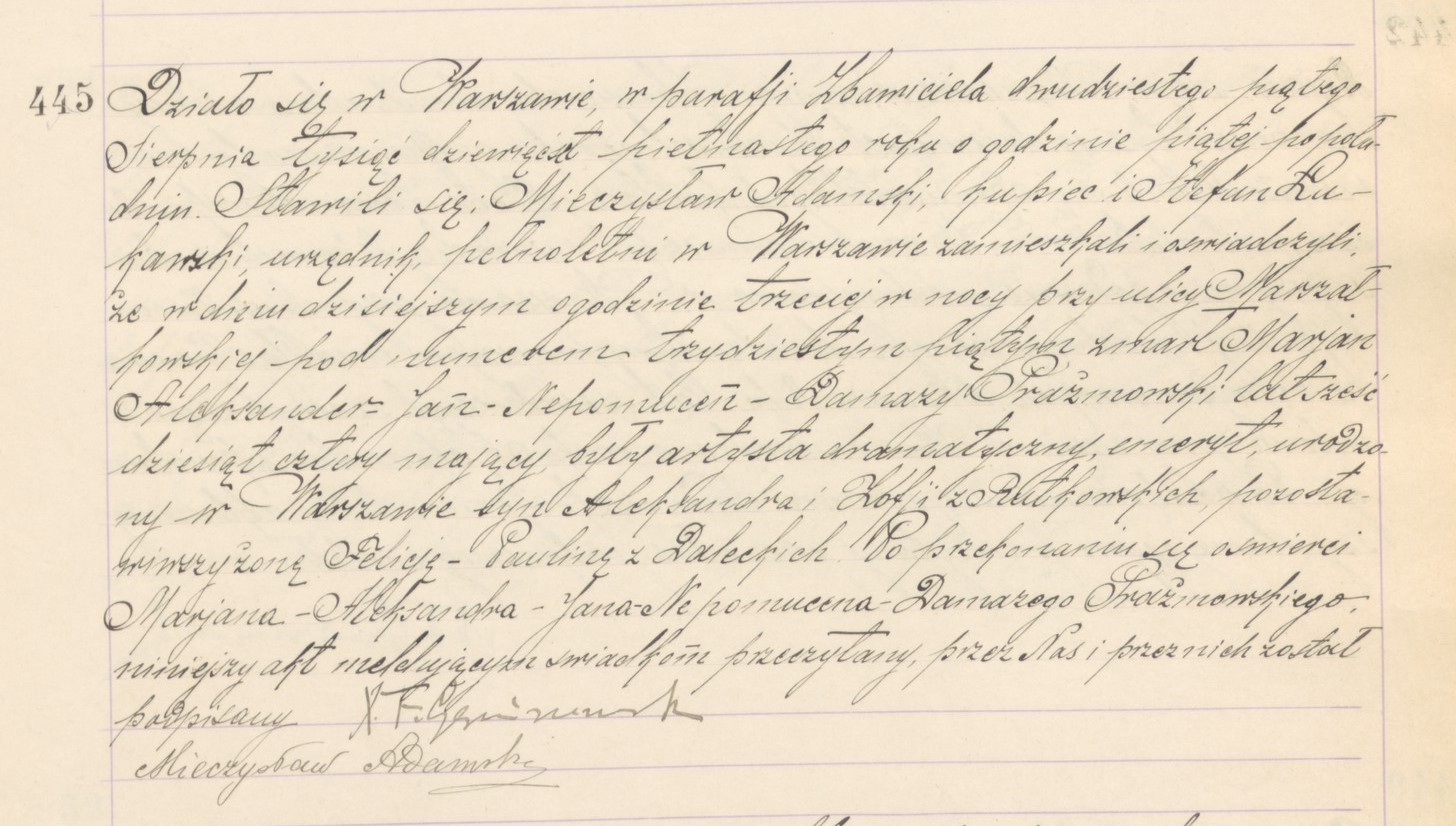 445 Działo się w Warszawie, w parafji Zbawiciela dwudziestego piątego
Sierpnia tysiąc dziewięćset piętnastego roku o godzinie piątej popołu-
dniu. Stawili się: Mieczysław Adamski, kupiec i Stefan Łu-
kawski, urzędnik, pełnoletni w Warszawie zamieszkali i oświadczyli,
że w dniu dzisiejszym o godzinie trzeciej w nocy przy ulicy Marszał-
kowskiej pod numerem trzydziestym piątym zmarł Marjan
Aleksander-Jan-Nepomucen-Damazy Prażmowski lat sześć
dziesiąt cztery mający, były artysta dramatyczny, emeryt, urodzo-
ny w Warszawie syn Aleksandra i Zofji z Rutkowskich, pozosta-
wiwszy żonę Felicję-Paulinę z Daleckich. Po przekonaniu się o śmierci
Marjana-Aleksandra-Jana-Nepomucena-Damazego Prażmowskiego,
niniejszy akt meldującym świadkom przeczytany, przez Nas i przez nich został
podpisany X. F.
Mieczysław Adamski